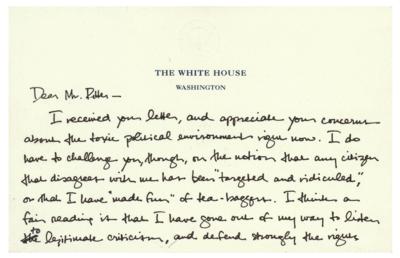 THE WHITE HOUSE
WASHINGTON
Dear Mr. Ritter —
I received your letter, and appreciate your concerns
about the toxic political environment right now. I do
have to challenge you, though, on the notion that any citizen
that disagrees with me has been "targeted and ridiculed,"
or that I have "made fun" of tea-baggers. I think a
fair reading is that I have gone out of my way to listen
to legitimate criticism, and defend strongly the right